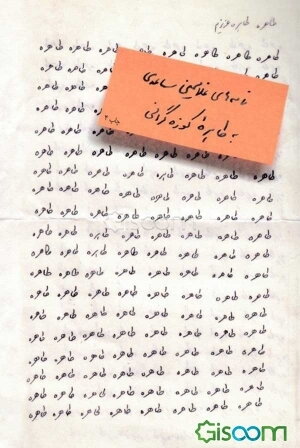 طاهره طاهره عزیزم
طاهره طاهره طاهره طاهره طاهره طاهره طاهره طاهره
نامه‌های غلامحسین ساعدی
به طاهرهٔ کوزه‌گرانی
چاپ ۲
طاهره طاهره
طاهره طاهره
طاهره طاهره
طاهره طاهره
طاهره طاهره طاهره طاهره طاهره طاهره
طاهره طاهره طاهره طاهره طاهره طاهره طاهره طاهره
طاهره طاهره طاهره طاهره طاهره طاهره طاهره طاهره
طاهره طاهره طاهره طاهره طاهره طاهره طاهره طاهره
طاهره طاهره طاهره طاهره طاهره طاهره طاهره طاهره
طاهره طاهره طاهره طاهره طاهره طاهره طاهره طاهره
طاهره طاهره طاهره طاهره طاهره طاهره طاهره طاهره
طاهره طاهره طاهره طاهره طاهره طاهره طاهره طاهره
طاهره طاهره طاهره طاهره طاهره طاهره طاهره طاهره
طاهره طاهره طاهره طاهره طاهره طاهره طاهره طاهره
طاهره طاهره طاهره طاهره طاهره طاهره طاهره طاهره
طاهره طاهره طاهره طاهره طاهره طاهره طاهره طاهره
طاهره طاهره طاهره طاهره طاهره طاهره طاهره طاهره
طاهره طاهره طاهره طاهره طاهره طاهره طاهره طاهره
Gisoom